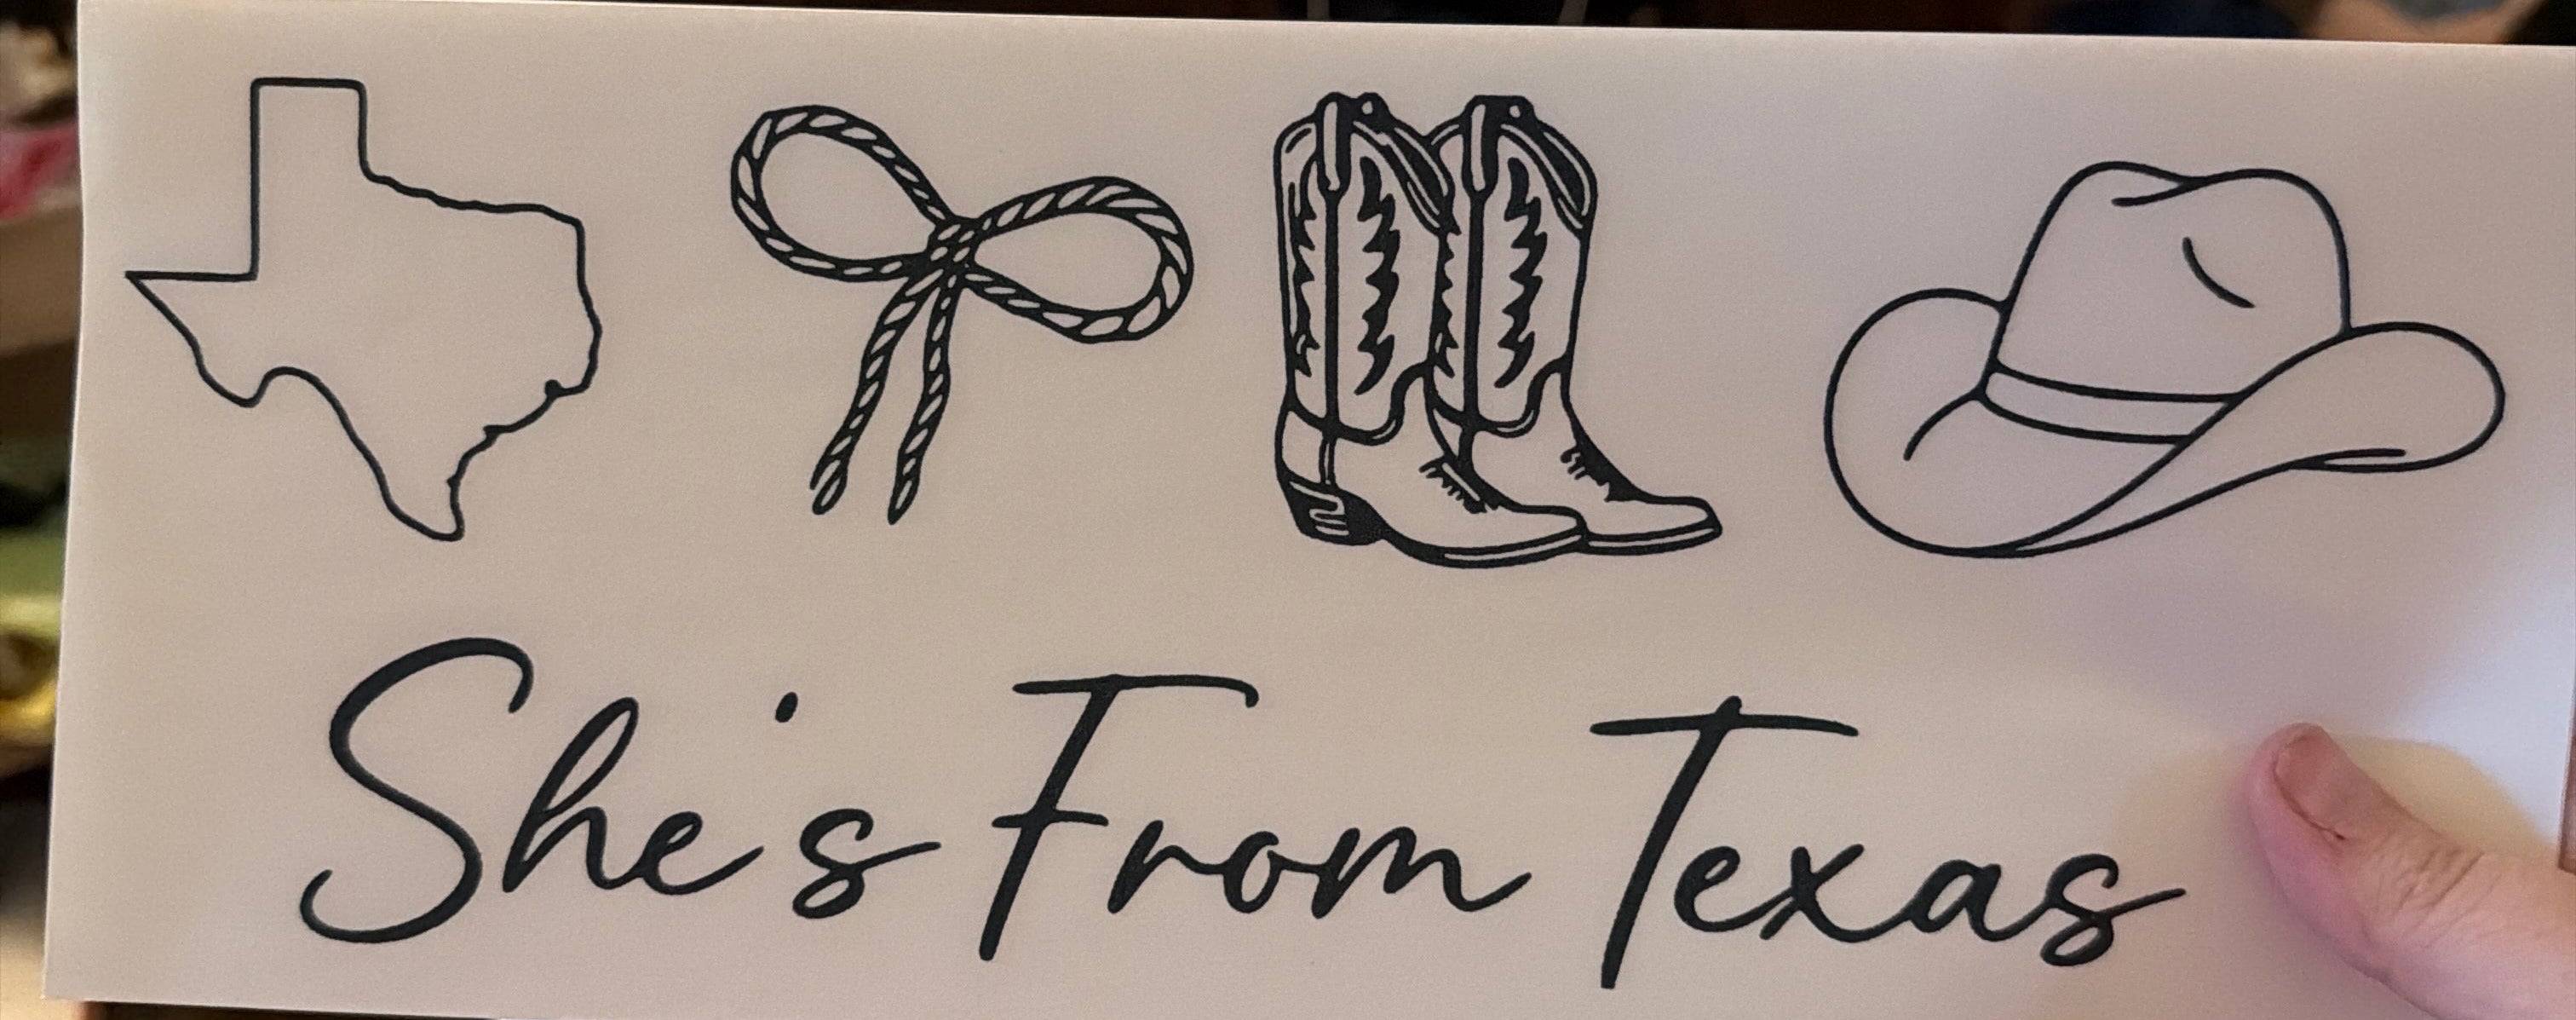 She's From Texas